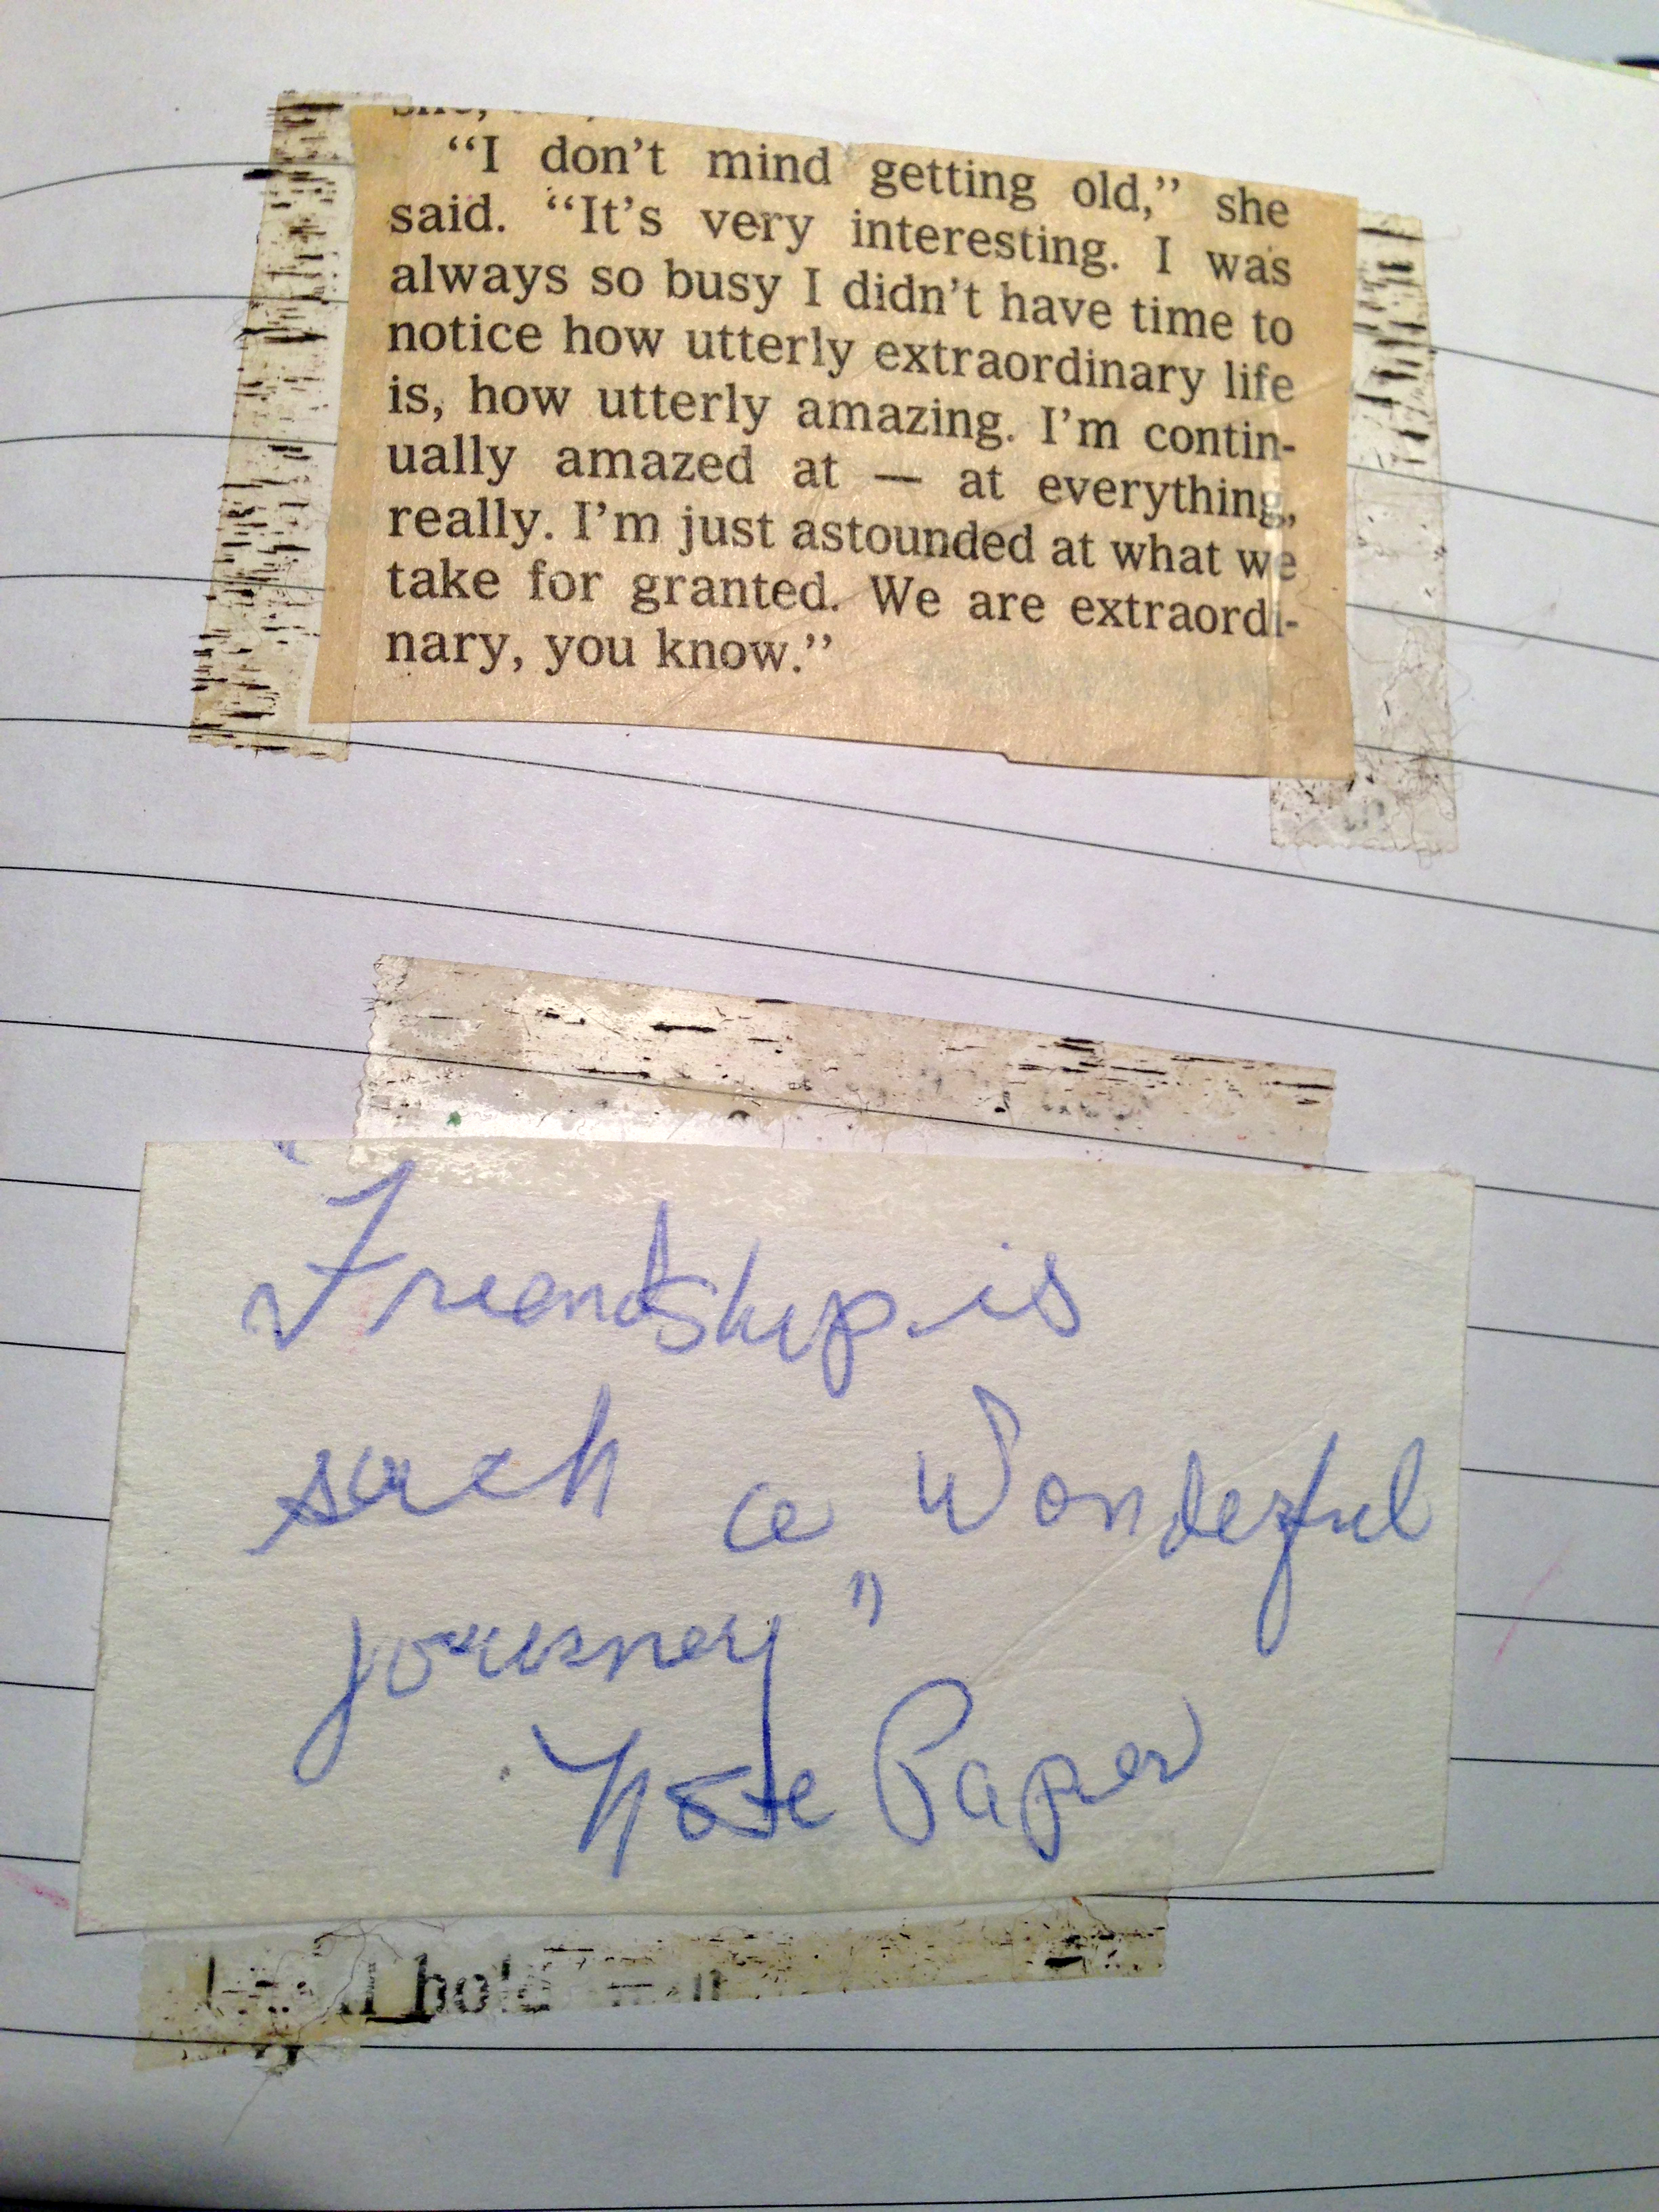 "I don't mind getting old," she
said. "It's very interesting. I was
always so busy I didn't have time to
notice how utterly extraordinary life
is, how utterly amazing. I'm contin-
ually amazed at — at everything,
really. I'm just astounded at what we
take for granted. We are extraordi-
nary, you know."
"Friendship is
such a Wonderful
journey"
Note Paper